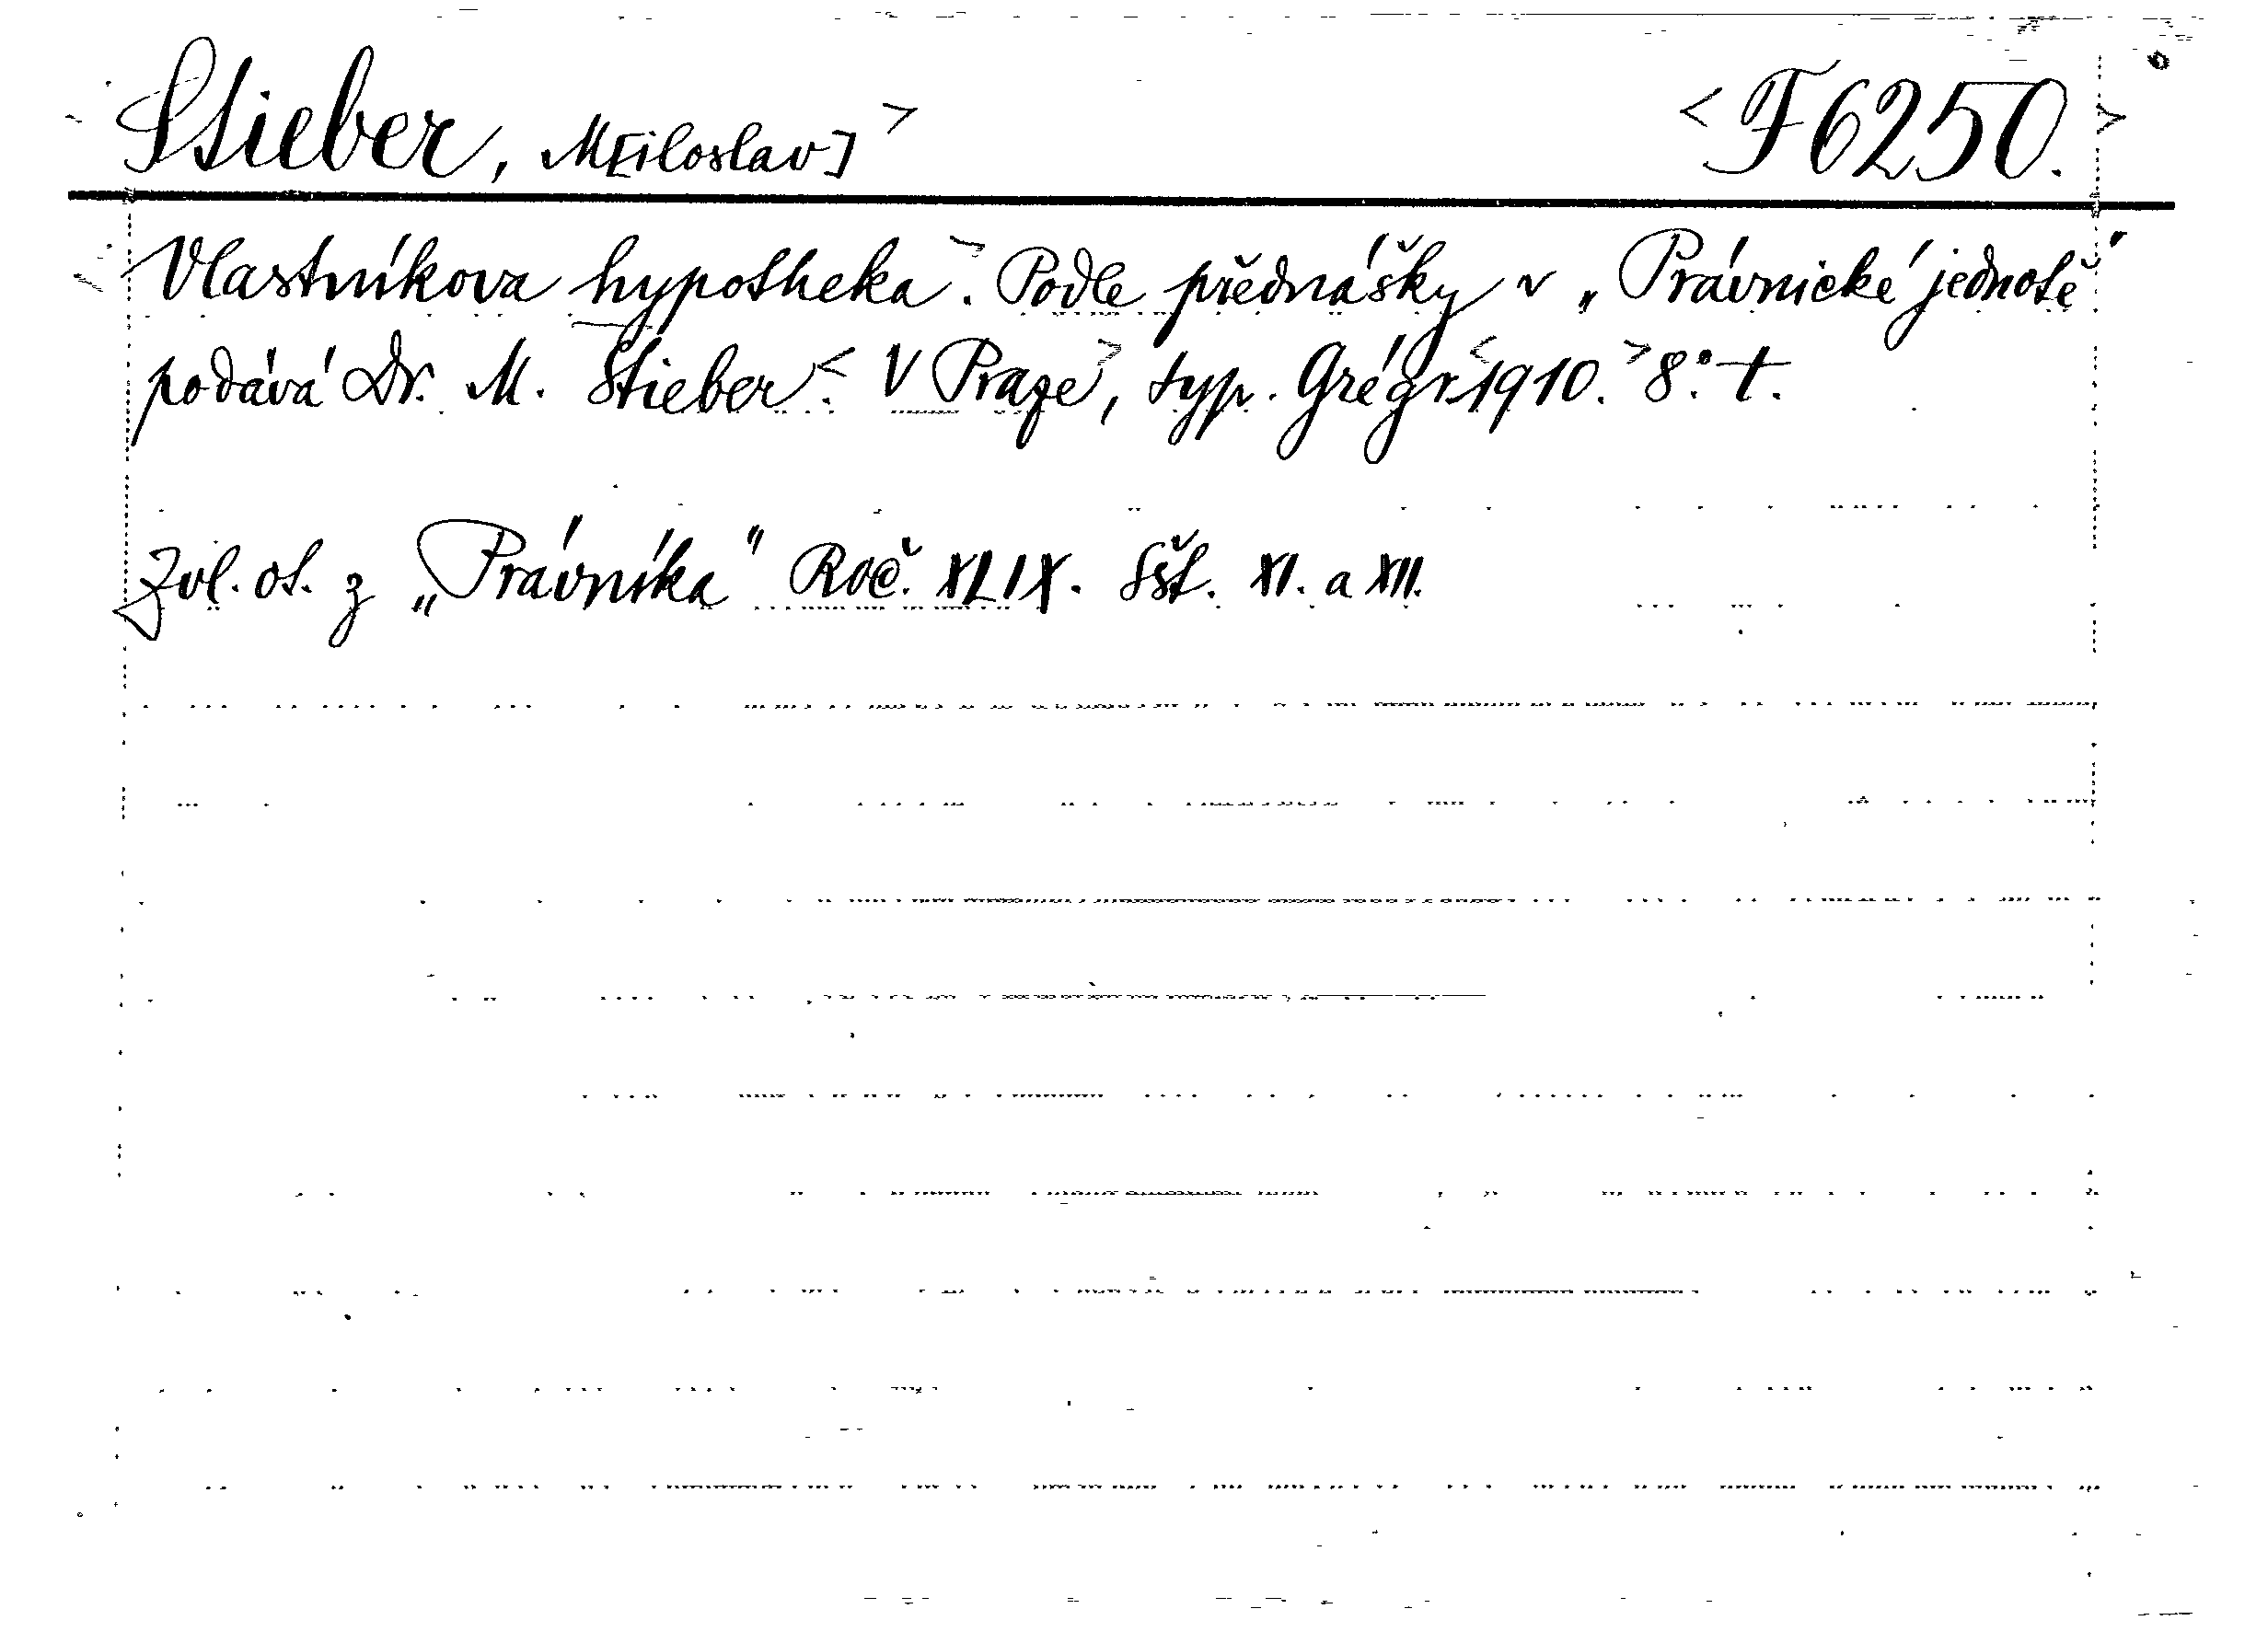 Stieber, M[iloslav] > < F 6250. >
< Vlastníkova hypotheka >. Podle přednášky v „Právnické jednotě"
podává Dr. M. Stieber. < V Praze >, typ. Grégr < 1910. > 8°. t.
Zvl. ot. z „Právníka" Roč. XLIX. Sšt. XI. a XII.